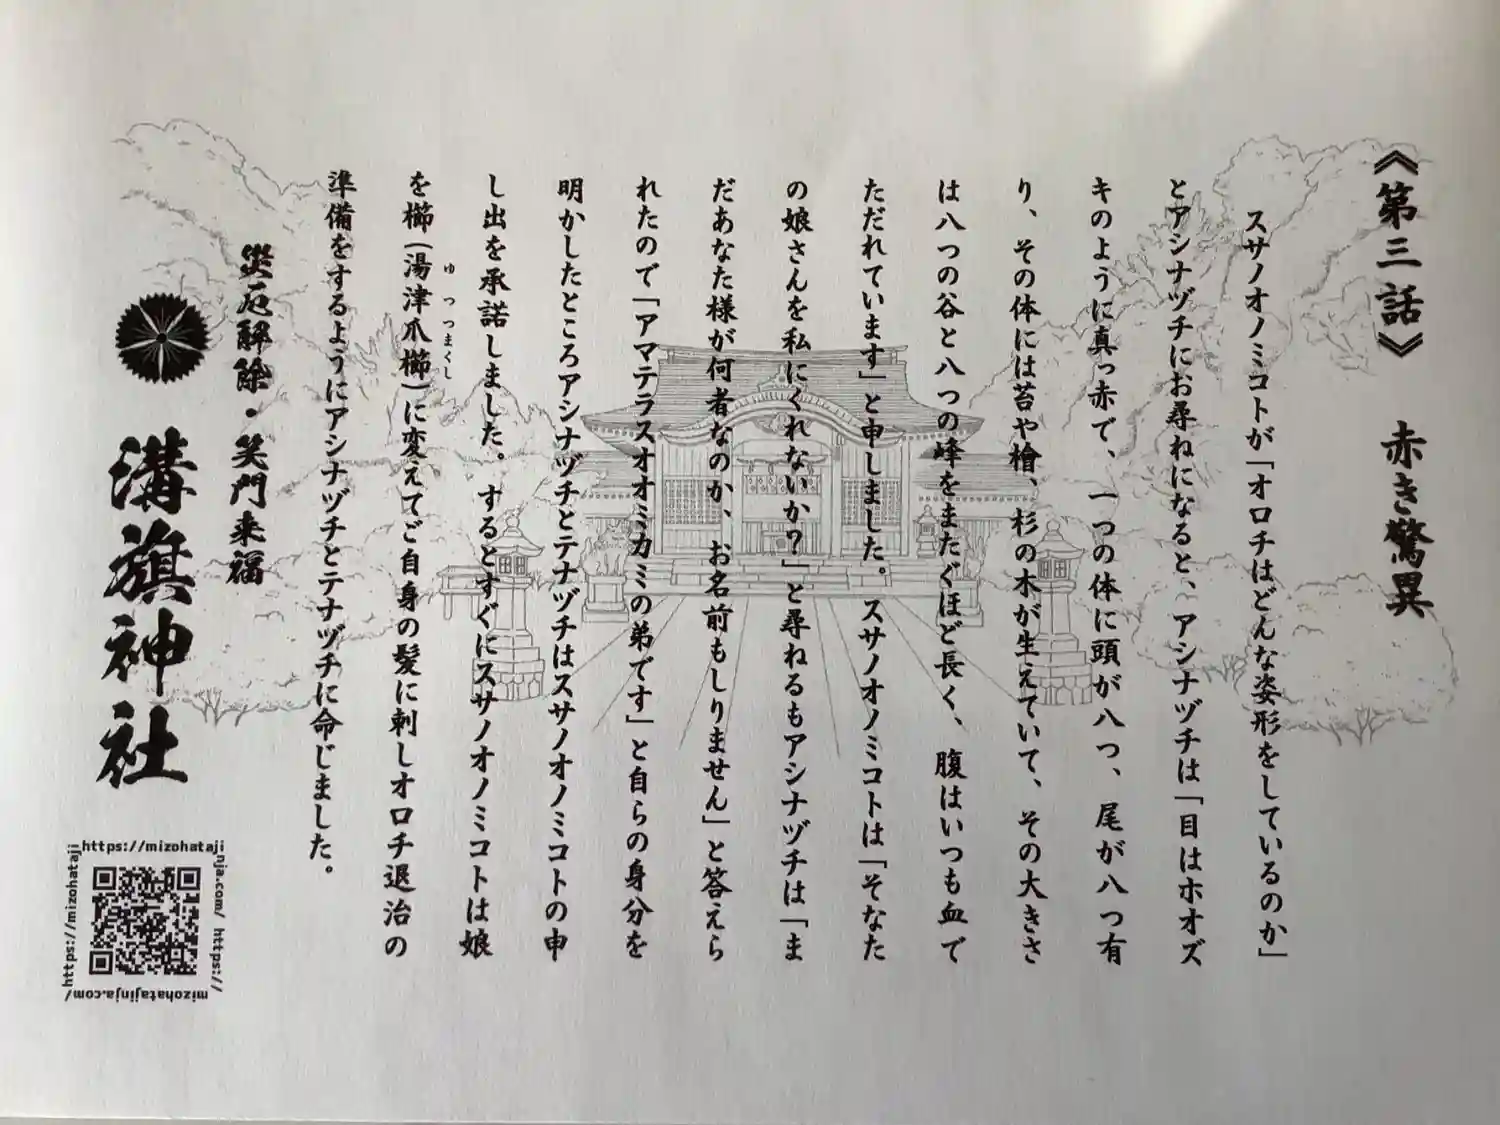 《第三話》 赤き驚異
スサノオノミコトが「オロチはどんな姿形をしているのか」
とアシナヅチにお尋ねになると、アシナヅチは「目はホオズ
キのように真っ赤で、一つの体に頭が八つ、尾が八つ有
り、その体には苔や檜、杉の木が生えていて、その大きさ
は八つの谷と八つの峰をまたぐほど長く、腹はいつも血で
ただれています」と申しました。スサノオノミコトは「そなた
の娘さんを私にくれないか？」と尋ねるもアシナヅチは「ま
だあなた様が何者なのか、お名前もしりません」と答えら
れたので「アマテラスオオミカミの弟です」と自らの身分を
明かしたところアシナヅチとテナヅチはスサノオノミコトの申
し出を承諾しました。するとすぐにスサノオノミコトは娘
を櫛(湯津爪櫛)に変えてご自身の髪に刺しオロチ退治の
ゆつつまくし
準備をするようにアシナヅチとテナヅチに命じました。
災厄解除・笑門来福
溝旗神社
https://mizohatajinja.com/ https://mizohatajinja.com/ https://mizohataji